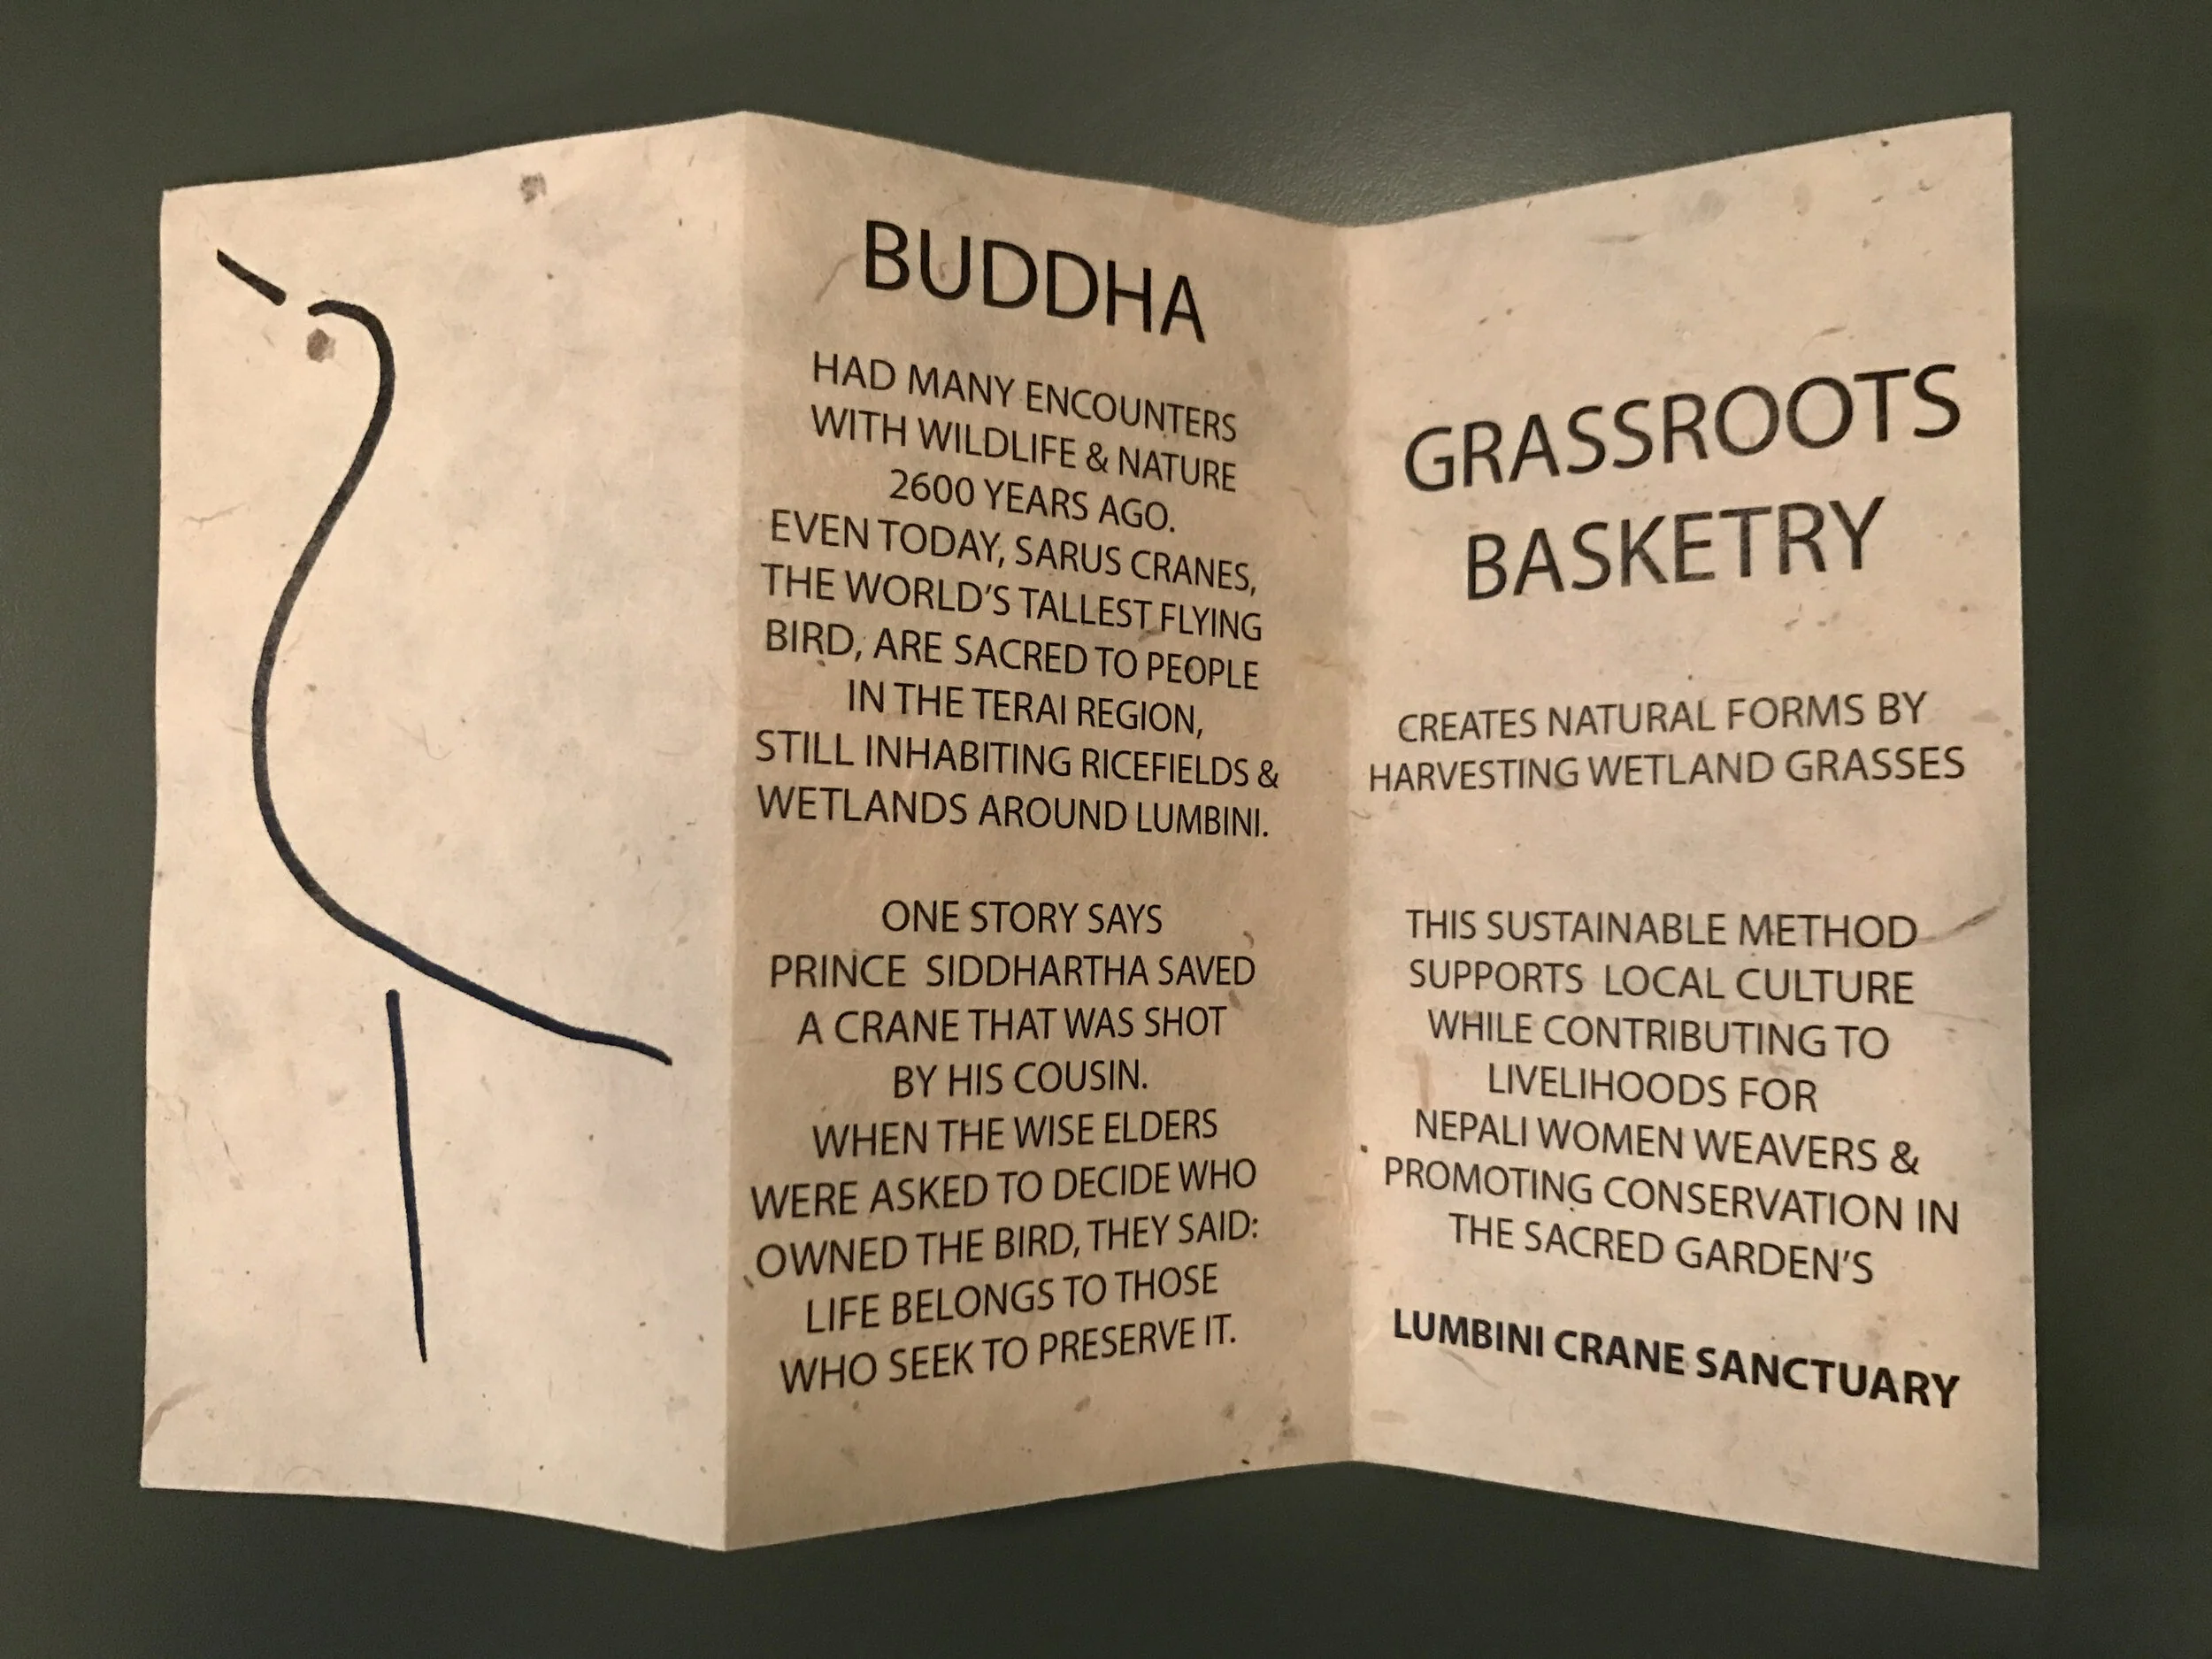 BUDDHA
HAD MANY ENCOUNTERS
WITH WILDLIFE & NATURE
2600 YEARS AGO.
EVEN TODAY, SARUS CRANES,
THE WORLD'S TALLEST FLYING
BIRD, ARE SACRED TO PEOPLE
IN THE TERAI REGION,
STILL INHABITING RICEFIELDS &
WETLANDS AROUND LUMBINI.
ONE STORY SAYS
PRINCE SIDDHARTHA SAVED
A CRANE THAT WAS SHOT
BY HIS COUSIN.
WHEN THE WISE ELDERS
WERE ASKED TO DECIDE WHO
OWNED THE BIRD, THEY SAID:
LIFE BELONGS TO THOSE
WHO SEEK TO PRESERVE IT.
GRASSROOTS
BASKETRY
CREATES NATURAL FORMS BY
HARVESTING WETLAND GRASSES
THIS SUSTAINABLE METHOD
SUPPORTS LOCAL CULTURE
WHILE CONTRIBUTING TO
LIVELIHOODS FOR
NEPALI WOMEN WEAVERS &
PROMOTING CONSERVATION IN
THE SACRED GARDEN'S
LUMBINI CRANE SANCTUARY